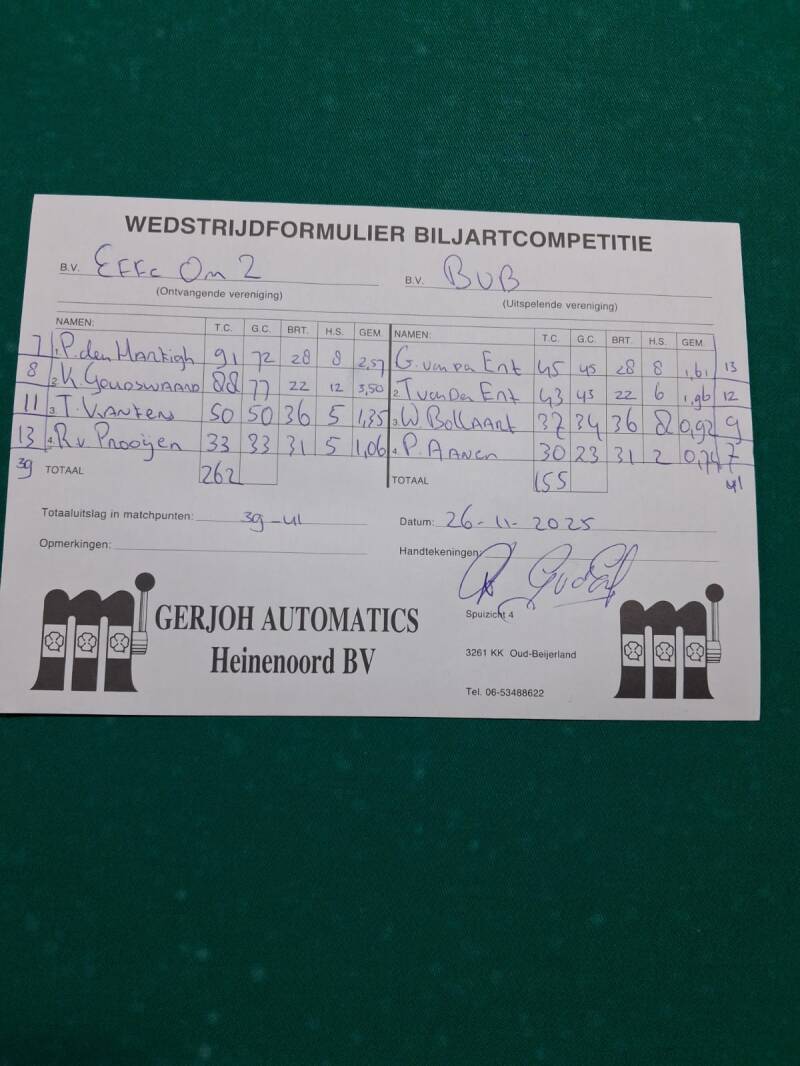 WEDSTRIJDFORMULIER BILJARTCOMPETITIE
B.V. Effe Om 2 B.V. BUB
(Ontvangende vereniging) (Uitspelende vereniging)
NAMEN: T.C. G.C. BRT. H.S. GEM. NAMEN: T.C. G.C. BRT. H.S. GEM.
7 1. P. den Hartigh 91 72 28 8 2,57 G. van Da Ent 45 45 28 8 1,61 13
8 2. K. Goudswaard 88 77 22 12 3,50 2. T van Da Ent 43 43 22 6 1,96 12
11 3. T. 50 50 36 5 1,35 3. W Bollaart 37 34 36 8 0,92 9
13 4. R v Prooijen 33 33 31 5 1,06 4. P. Aanen 30 23 31 2 0,74 7
39 TOTAAL 262 TOTAAL 155 41
Totaaluitslag in matchpunten: 39-41 Datum: 26-11-2025
Opmerkingen: Handtekeningen:
GERJOH AUTOMATICS
Heinenoord BV
Spuizicht 4
3261 KK Oud-Beijerland
Tel. 06-53488622